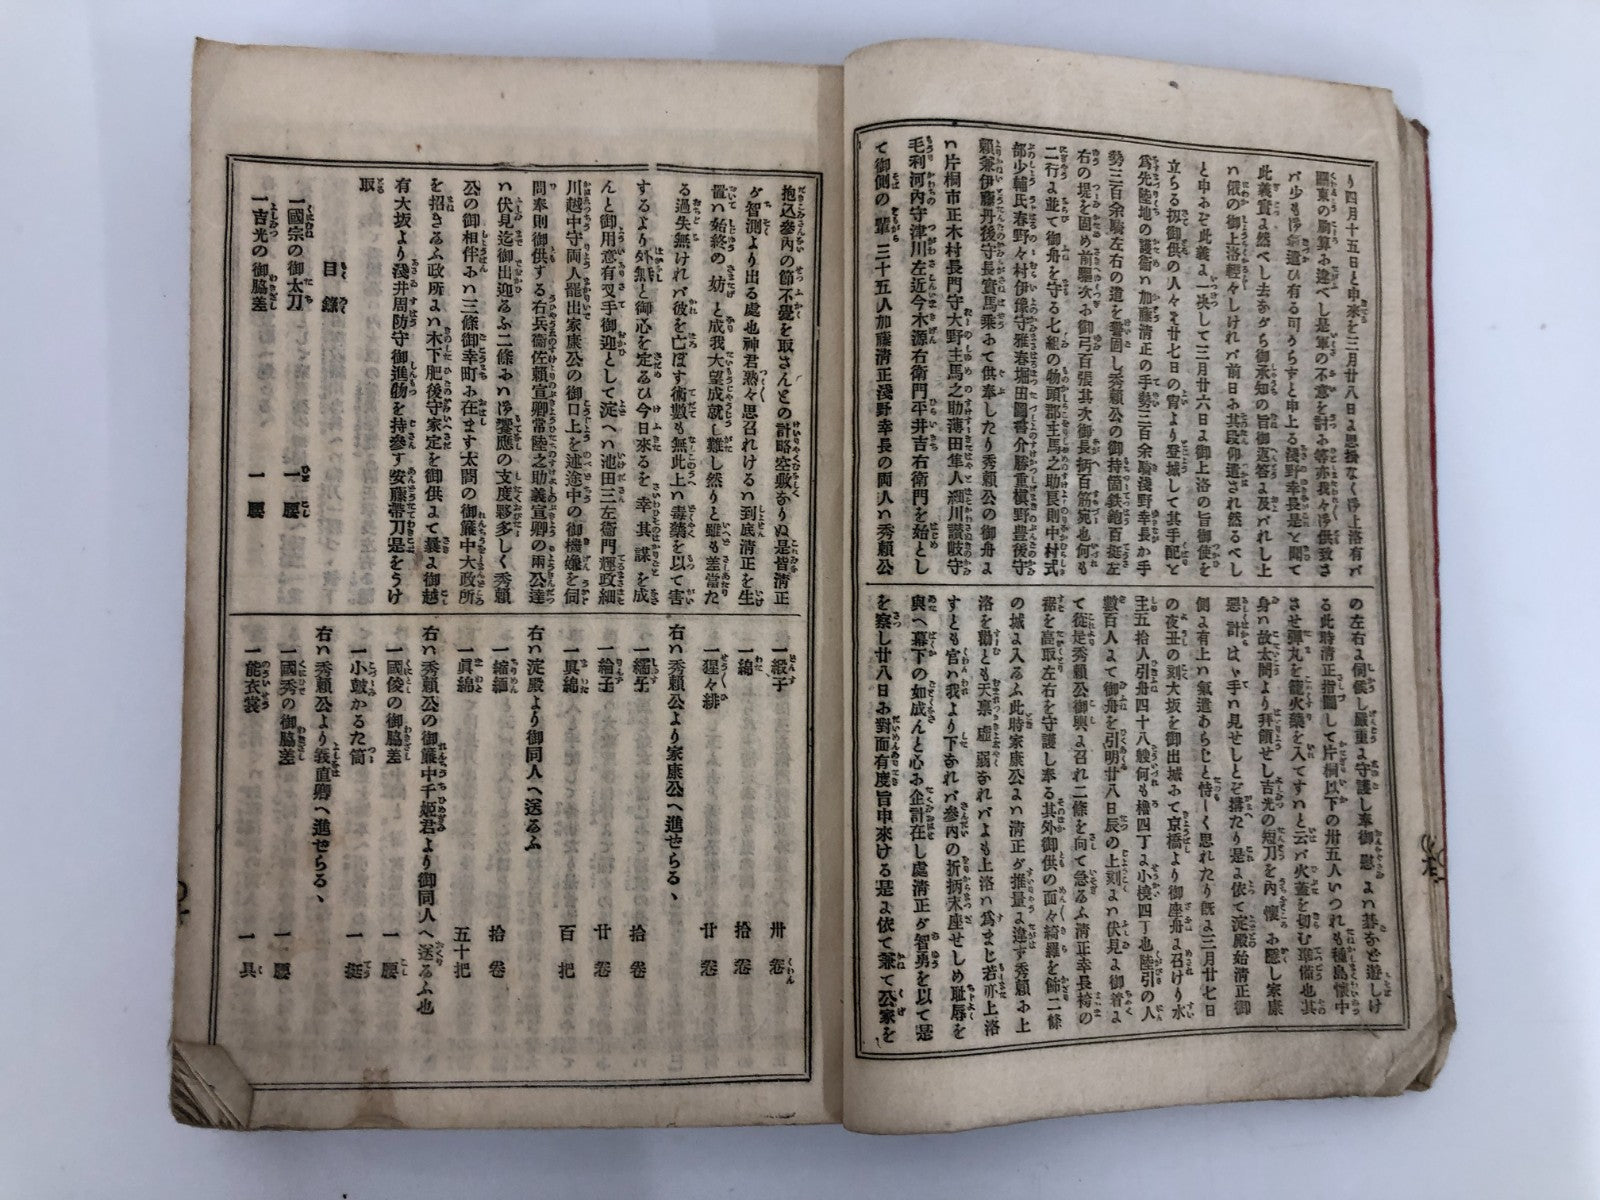 り四月十五日と申來を三月廿八日よ思損なく御上洛有バ
關東の駿算ふ違べし是軍の不意を討ふ等亦我々御供致さ
バ少も御氣遣ひ有る可うらずと申上る淺野幸長是と聞て
此義實よ然べし去ながら御承知の旨御返答よ及バれし上
ハ俄の御上洛輕々しけれバ前日ふ其段仰遣され然るべし
と申ふぞ此義よ一决して三月廿六日よ御上洛の旨御使を
立らる扨御供の人々そ廿七日の宵より登城して其手配と
爲先陸地の護衛ハ加藤清正の手勢三百余騎淺野幸長か手
勢三百余騎左右の道を警固し秀頼公の御持筒鉄鉋百挺左
右の堤を固め前驅次ふ御弓百張其次御長柄百筋宛也何も
二行よ並て御舟を守る七組の物頭郡主馬之助良則中村式
部少輔氏春野々村伊豫守雅春堀田圖書介勝重槇野豊後守
頼兼伊藤丹後守長實馬乗ふて供奉したり秀頼公の御舟よ
ハ片桐市正木村長門守大野主馬之助薄田隼人細川讃岐守
毛利河内守津川左近今木源右衛門平井吉右衛門を始とし
て御側の輩三十五人加藤清正淺野幸長の両人ハ秀頼公
の左右よ伺候し嚴重よ守護し奉御慰よハ碁など遊しけ
る此時清正指圖して片桐以下の卅五人いつれも種島懐中
させ彈丸を籠火藥を入てすハと云バ火蓋を切む準備也其
身ハ故太閤より拜領せし吉光の短刀を内懐ふ隠し家康
惡計はゝ手ハ見せしとぞ搆たり是よ依て淀殿始清正御
側よ有上ハ氣遣あらじと恃しく思れたり既よ三月廿七日
の夜丑の刻大坂を御出城ふて京橋より御座舟よ召けり水
主五拾人引舟四十八艘何も櫓四丁よ小橈四丁也陸引の人
數百人よて御舟を引明廿八日辰の上刻よハ伏見よ御着よ
て從是秀頼公御輿よ召れ二條を向て急るふ清正幸長袴の
裾を高取左右を守護し奉る其外御供の面々綺羅を飾二條
の城よ入るふ此時家康公よハ清正が推量よ違す秀頼ふ上
洛を勸とも天禀虚弱なれバよも上洛ハ爲まじ若亦上洛
すとも官ハ我より下なれバ參内の折柄末座せしめ耻辱を
與へ幕下の如成んと心ふ企計在し處清正が智勇を以て是
を察し廿八日ふ對面有度旨申來ける是よ依て兼て公家を
抱込參内の節不覺を取さんとの計略空敷なりぬ是皆清正
が智測より出る處也神君熟々思召れけるハ到底清正を生
置ハ始終の妨と成我大望成就し難し然りと雖も差當た
る過失無けれバ彼を亡ぼす術數も無此上ハ毒藥を以て害
するより外無と御心を定るひ今日來るを幸其謀を成
んと御用意有扨御迎として淀へハ池田三左衛門輝政細
川越中守両人罷出家康公の御口上を述途中の御機嫌を伺
問奉則御供する右兵衞佐頼宣卿常陸之助義宣卿の兩公達
ハ伏見迄御出迎るふ二條ふハ御饗應の支度夥多しく秀頼
公の御相伴ふハ三條御幸町ふ在ます太閤の御簾中大政所
を招きるふ政所よハ木下肥後守家定を御供よて曩よ御越
有大坂より淺井周防守御進物を持參す安藤帶刀是をうけ
取
目錄
一國宗の御太刀　一腰
一吉光の御脇差　一腰
一緞子　卅卷
一綿　拾卷
一猩々緋　廿卷
右ハ秀頼公より家康公へ進せらる、
一繻子　拾卷
一綸子　廿卷
一眞綿　百把
右ハ淀殿より御同人へ送るふ
一縮緬　拾卷
一眞綿　五十把
右ハ秀頼公の御簾中千姫君より御同人へ送るふ也
一國俊の御脇差　一腰
一小皷かるた筒　一挺
一國秀の御脇差　一腰
右ハ秀頼公より義直卿へ進せらる、
一能衣裳　一具